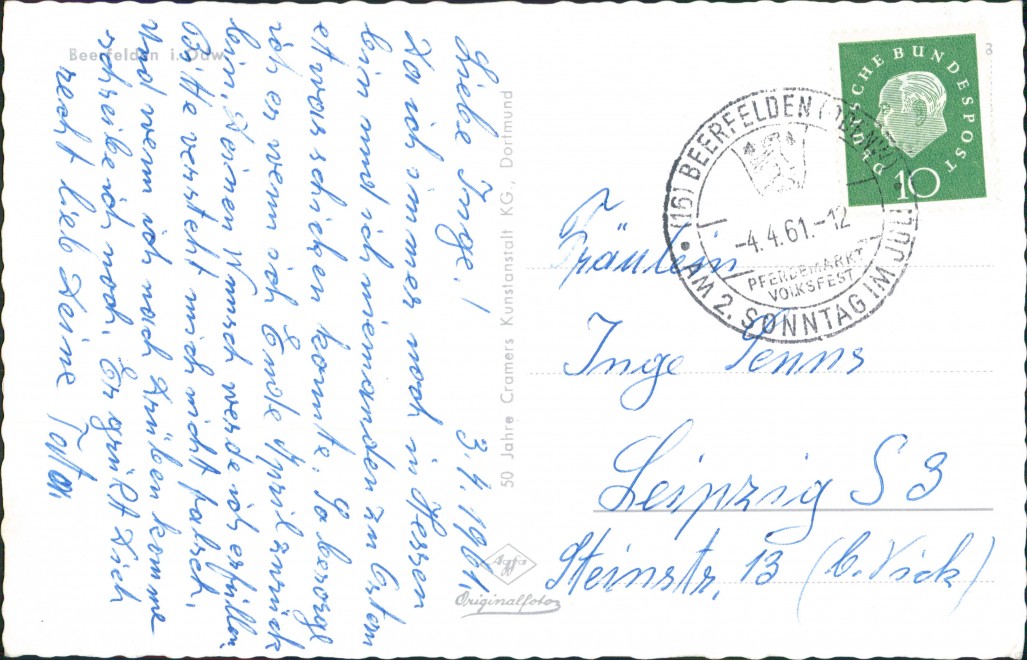 Beerfelden i. Odw.
Liebe Inge! 3.4.1961.
Da ich immer noch in Hessen
bin und ich niemanden zu Ostern
etwas schicken konnte. Sobersorge
ich es wenn ich Ende April zurück
bin. Deinen Wunsch werde ich erfüllen.
Bitte versteht mich nicht falsch.
Und wenn ich nach drüben komme
schreibe ich noch. Es grüßt Dich
recht lieb Deine
50 Jahre Cramers Kunstanstalt KG., Dortmund
Agfa
Originalfoto
DEUTSCHE BUNDESPOST
10
(16) BEERFELDEN (ODENW)
-4.4.61.-12
PFERDEMARKT
VOLKSFEST
AM 2. SONNTAG IM JULI
Fräulein
Inge Penns
Leipzig S 3
Steinstr. 13 (b. Vick)